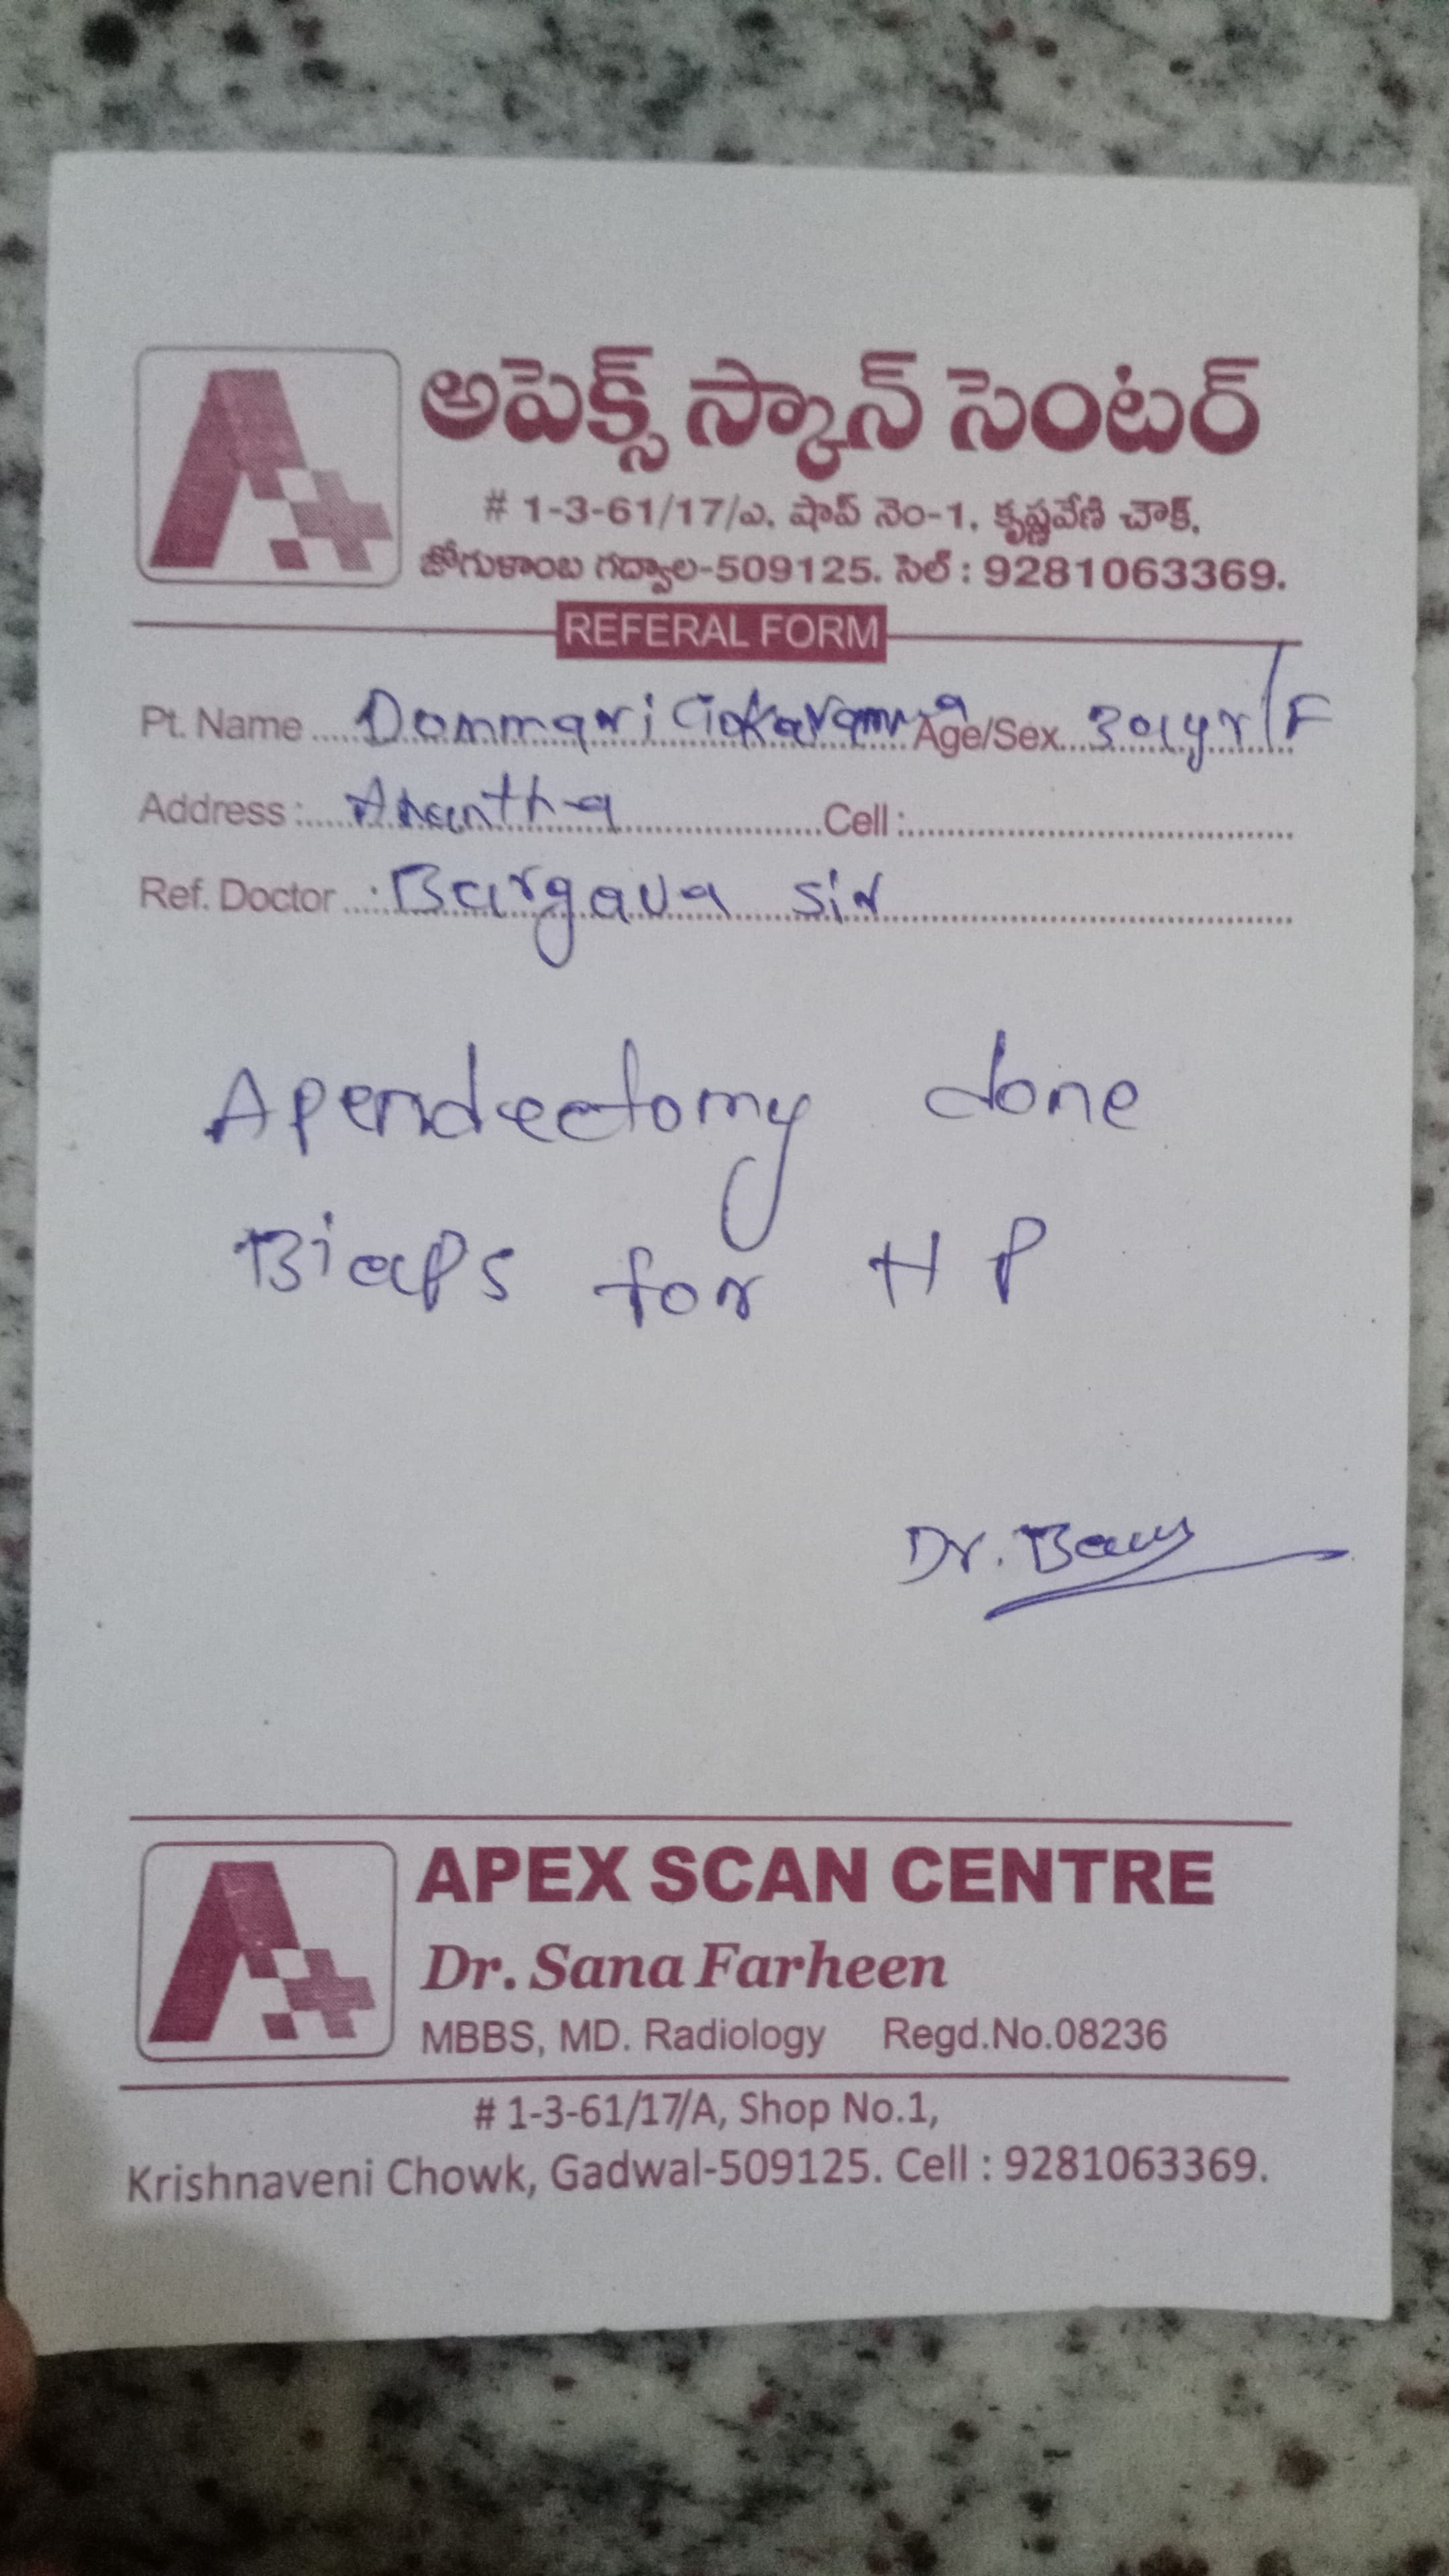 అపెక్స్ స్కాన్ సెంటర్
# 1-3-61/17/ఎ, షాప్ నెం-1, కృష్ణవేణి చౌక్,
జోగుళాంబ గద్వాల-509125. సెల్ : 9281063369.
REFERAL FORM
Pt. Name Dommari Age/Sex 30yr/F
Address : Anantha Cell :
Ref. Doctor : Bargava sir
Apendectomy done
for HP
Dr.
APEX SCAN CENTRE
Dr. Sana Farheen
MBBS, MD. Radiology Regd.No.08236
# 1-3-61/17/A, Shop No.1,
Krishnaveni Chowk, Gadwal-509125. Cell : 9281063369.